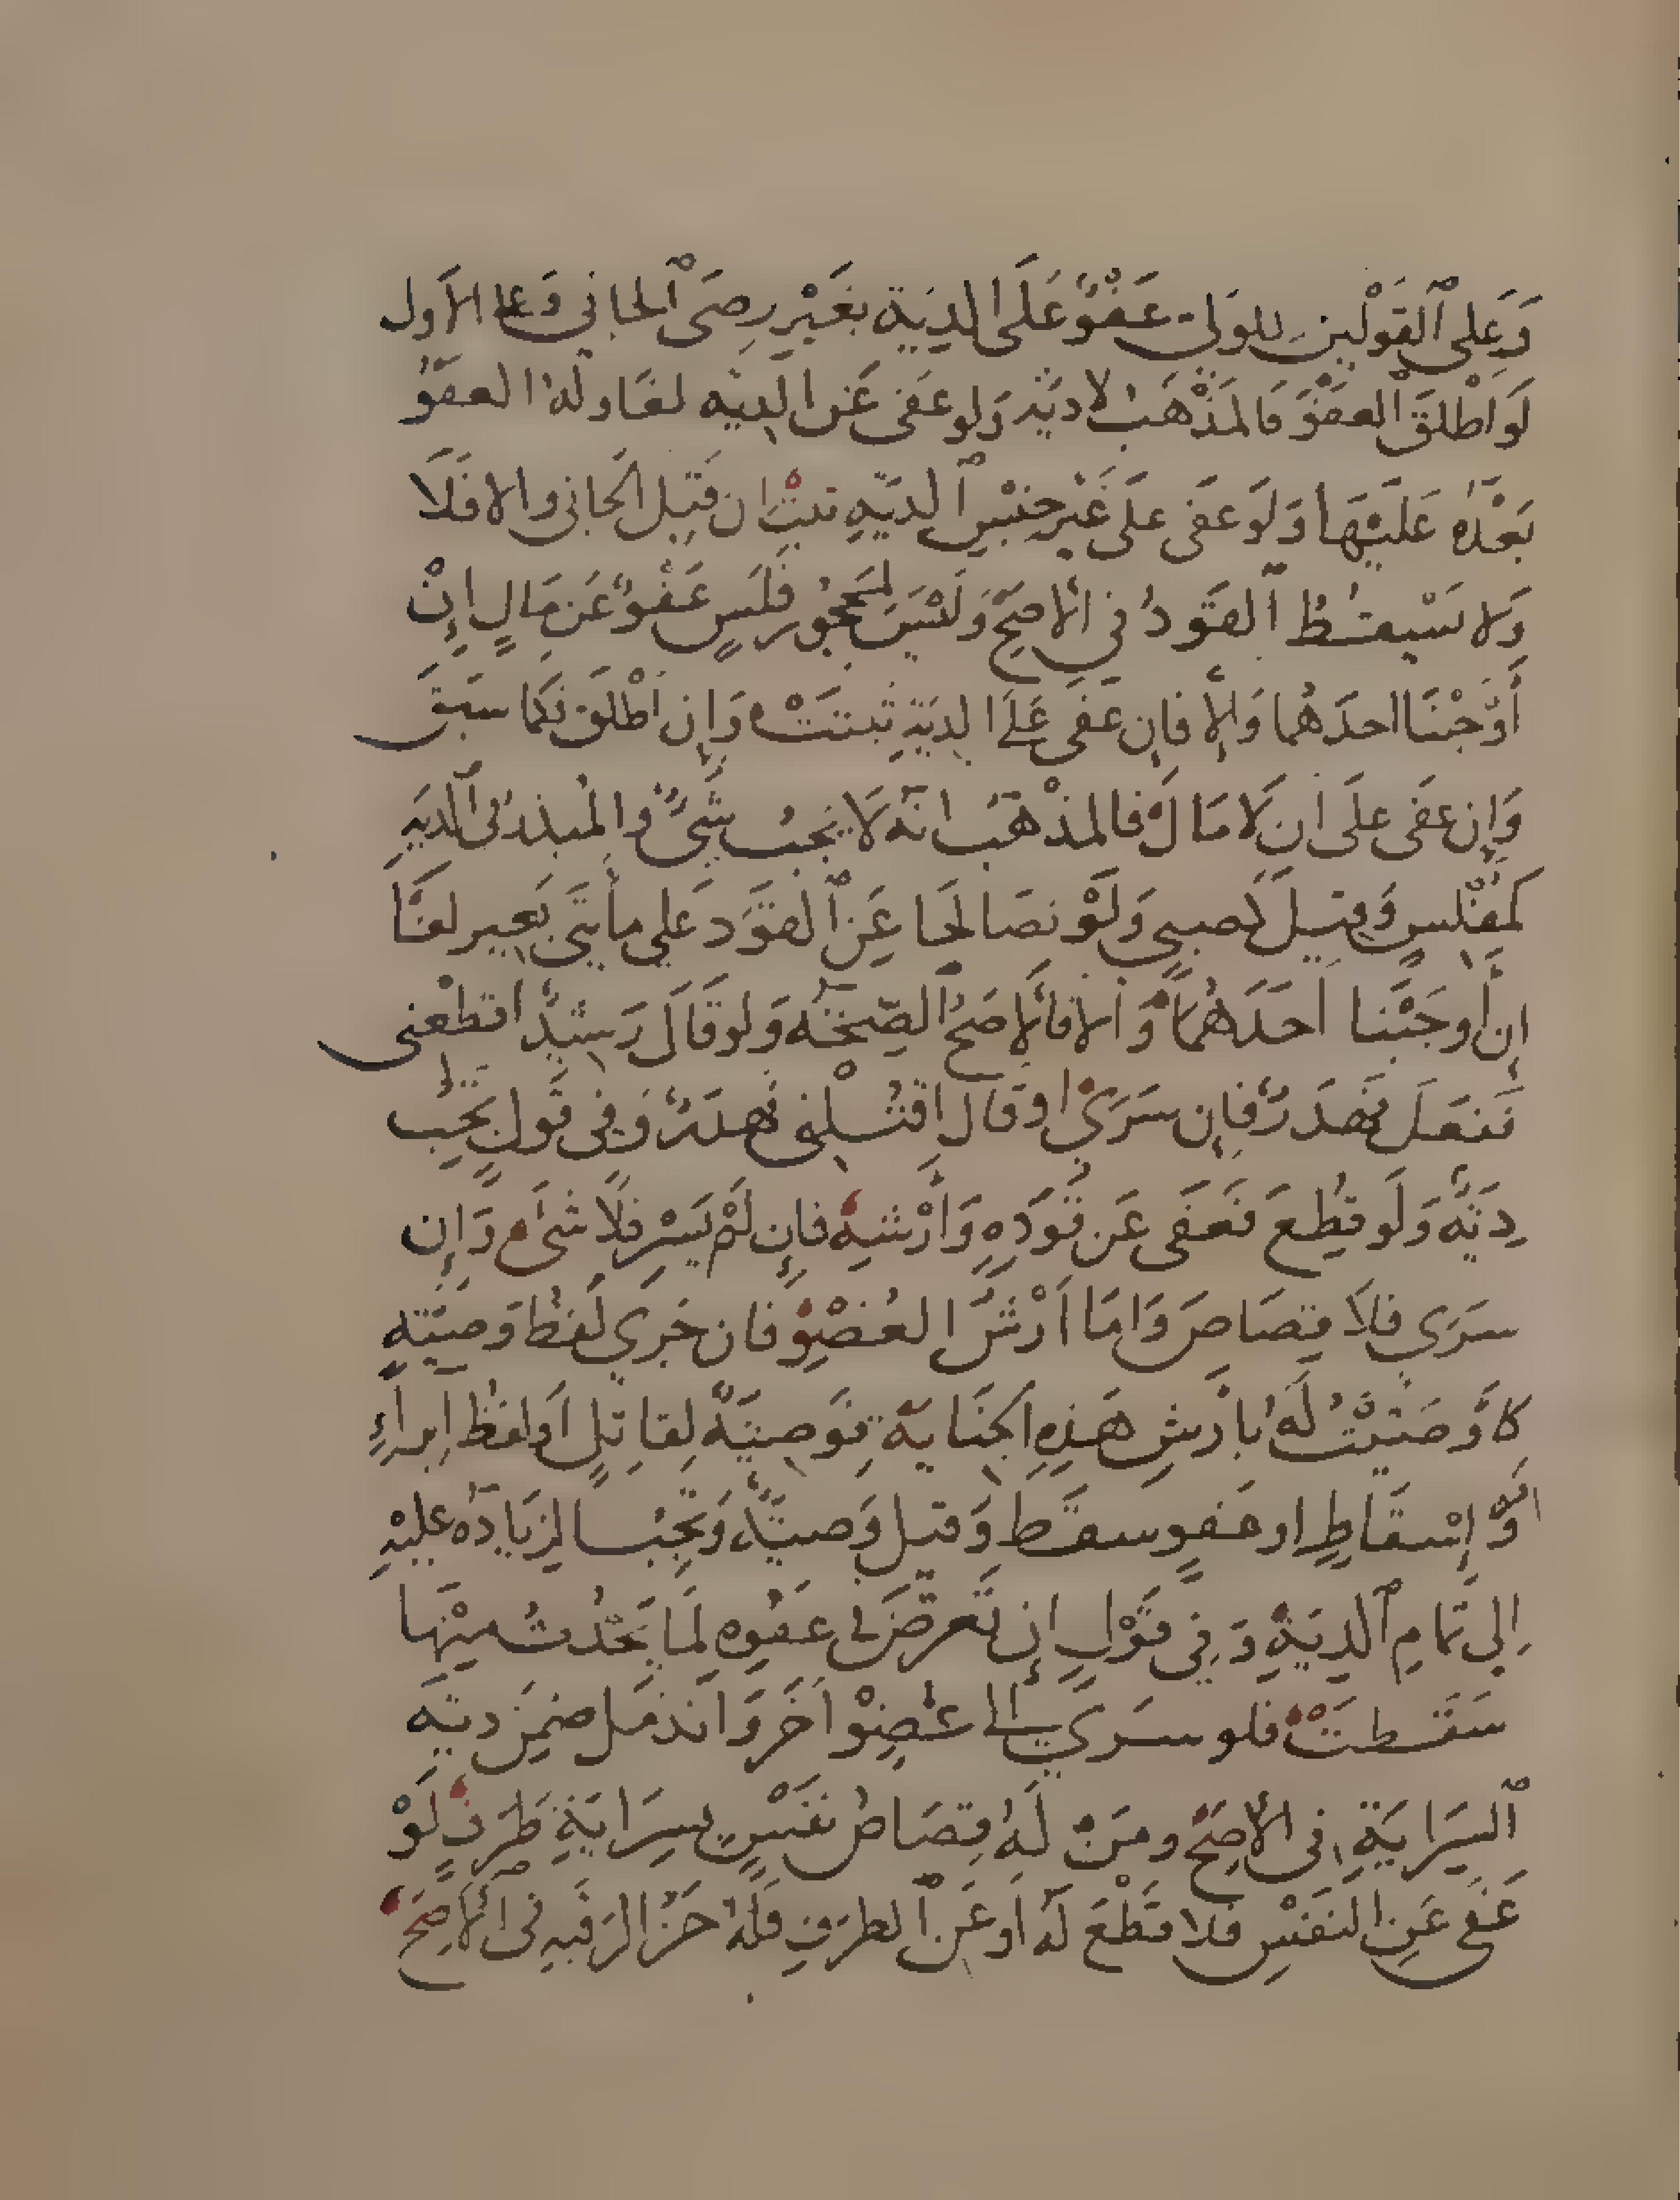 وَعَلى ٱلقَوْلَينِ للوَلي عَفْوٌ عَلَى الدِيَة بغَيْرِ رِضَى ٱلجاني وَعلى الاَول
لَو اَطْلقَ ٱلعفْوَ فَالمَذْهَبُ لا ديَة وَلو عَفى عَن الديَه لغَا وَلهُ العفوُ
بَعْدَهُ عَلَيْهَا وَلَو عَفى على غَيْر جنْسِ ٱلديَةِ ثبتْ ان قَبِلَ الجانى والا فَلَا
وَلا يَسْقُطُ ٱلقَوَدُ في الأصَحِّ وَلَيْسَ لمَحجُورِ فَلَسٍ عَفْوٌ عَن مَالٍ إنْ
أَوْجَبْنَا احدَهُما وَإلاَّ فَإن عَفى عَلَى الديَةِ ثَبتَتْ وَإن أطْلقَ فكَما سَبَقَ
وَإن عَفَى علَى أن لَا مَالَ فالمذْهَبُ انَّهُ لَا يَجبُ شَيْءٌ والمُبذرُ في ٱلديَةِ
كَمفْلسٍ وَقيلَ كَصبيٍ وَلَوْ تصَالَحَا عَن ٱلقوَد علي مأيتَي بَعيرٍ لغَا
إن أَوجَبْنا اَحَدَهُمَا وَالا فَالأصَحُّ ٱلصِّحَّةُ وَلو قَالَ رَشيدٌ اقطَعْنى
فَفعَلَ فهَدَرٌ فَإن سَرَىْ اوقال اقتُلْني فهدَرٌ وَفي قَولٍ تَجبُ
دِيَةٌ وَلَو قُطِعَ فَعَفَى عَن قَوَدِهِ وَأرْشهِ فإن لَمْ يَسْرِ فلَا شَىْءَ وَإن
سَرَى فلَا قصَاصَ وَامَا اَرْشُ العُضْوِ فان جَرَي لَفظُ وَصيَّتهٍ
كاَوْصَيْتُ لَهُ بارْشِ هَذِهِ الجنَايَة فوَصيَّةٌ لِقاتِلٍ اَو لفظُ إبراءٍ
اَوْ إسْقَاطٍ او عَفوٍ سقَط وَقيل وَصيَّةٌ وَتجبُ الزيادَه عليْهِ
إلى تَمامِ ٱلديَةِ وَفِي قَوْلٍ إن تَعرضَ في عَفوهِ لَمَا يَحْدُثُ مِنْهَا
سَقَطتْ فلو سَرَىَ إلى عُضوْ آخَرَ وَاندَمَل ضمِنَ ديَة
ٱلسِرَايَةِ فى الأصَحِّ ومَنْ لَهُ قِصَاصُ نَفْسٍ بسِرَايَةِ طَرَفٍ لَوْ
عَفى عَنِ النفْسِ فلا قَطْعَ لَهُ اَو عَن ٱلطرَفِ فلَهُ حَزُّ الرَقَبهِ فى ٱلأصَحِّ